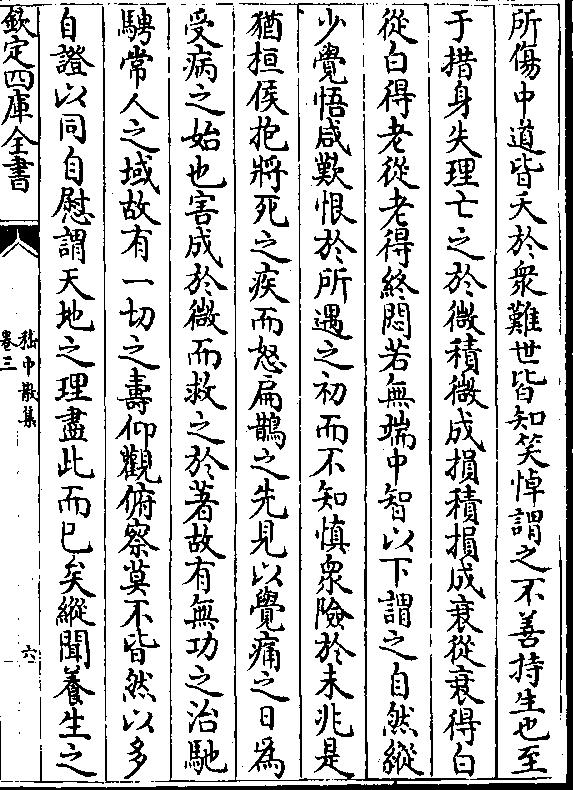 所傷中道皆夭於衆難世皆知笑悼謂之不善持生也至
于措身失理亡之於微積微成損積損成衰從衰得白
從白得老從老得終悶若無端中智以下謂之自然縱
少覺悟咸歎恨於所遇之初而不知慎衆險於未兆是
猶桓侯抱將死之疾而怒扁鵲之先見以覺痛之日為
受病之始也害成於微而救之於著故有無功之治馳
騁常人之域故有一切之壽仰觀俯察莫不皆然以多
自證以同自慰謂天地之理盡此而已矣縱聞養生之
欽定四庫全書
嵇中散集
卷三
六